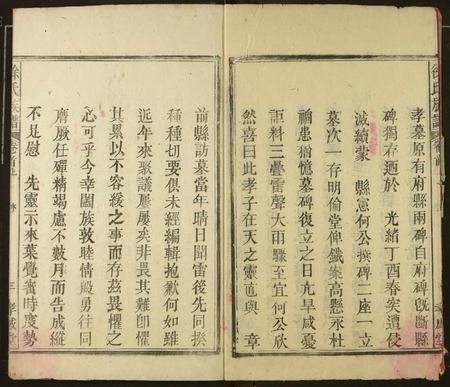 孝墓原有府縣兩碑自府碑旣斷縣
碑獨存迺於　光緒丁酉春突遭侵
滅續蒙　縣憲何公撰碑二座一立
墓次一存明倫堂俾鐵案高懸永杜
禍患猶憶墓碑復立之日亢旱咸憂
詎料三疊雷聲大雨驟至宜何公欣
然喜曰此孝子在天之靈直與　章
前縣訪墓當年晴日聞雷後先同揆
種種切要俱未經編輯抱歉何如雖
近年來聚議屢屢矣非畏其難卽懼
其累以不容緩之事而存茲畏懼之
心可乎今幸闔族敦睦情殷勇往同
膺厥任殫精竭慮不數月而告成縱
不足慰　先靈示來葉覺審時度勢
徐氏族譜
卷首上
序
三
孝感堂